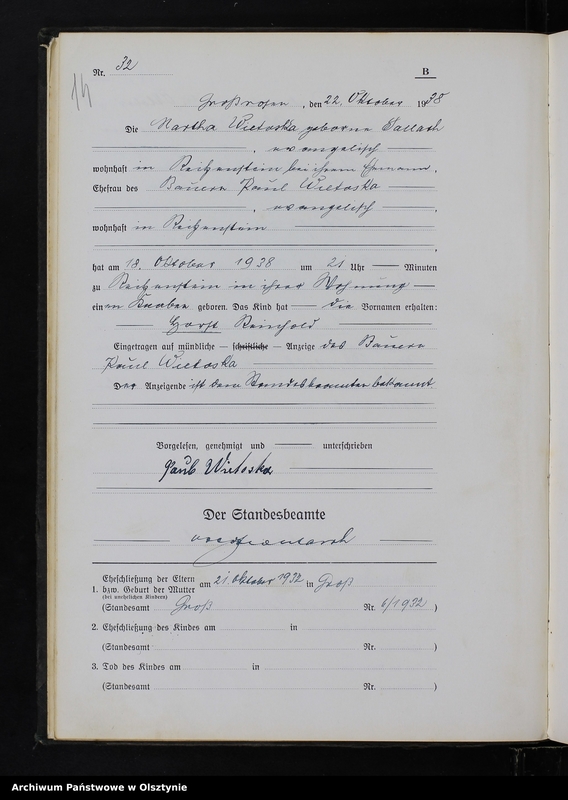 14
Nr. 32 B
Großrosen, den 22. Oktober 1938
Die Martha Wietoska geborne Sallach
, evangelisch
wohnhaft in Reitzenstein bei ihrem Ehemann,
Ehefrau des Bauern Paul Wietoska
, evangelisch,
wohnhaft in Reitzenstein
,
hat am 18. Oktober 1938 um 21 Uhr — Minuten
zu Reitzenstein in ihrer Wohnung
einen Knaben geboren. Das Kind hat — die Vornamen erhalten:
Horst Reinhold
Eingetragen auf mündliche — schriftliche — Anzeige des Bauern
Paul Wietoska
Der Anzeigende ist dem Standesbeamten bekannt
Vorgelesen, genehmigt und — unterschrieben
Paul Wietoska
Der Standesbeamte
1. Eheschließung der Eltern
bzw. Geburt der Mutter am 21. Oktober 1932 in Groß
(bei unehelichen Kindern)
(Standesamt Groß Nr. 6/1932)
2. Eheschließung des Kindes am in
(Standesamt Nr. )
3. Tod des Kindes am in
(Standesamt Nr. )
Archiwum Państwowe w Olsztynie